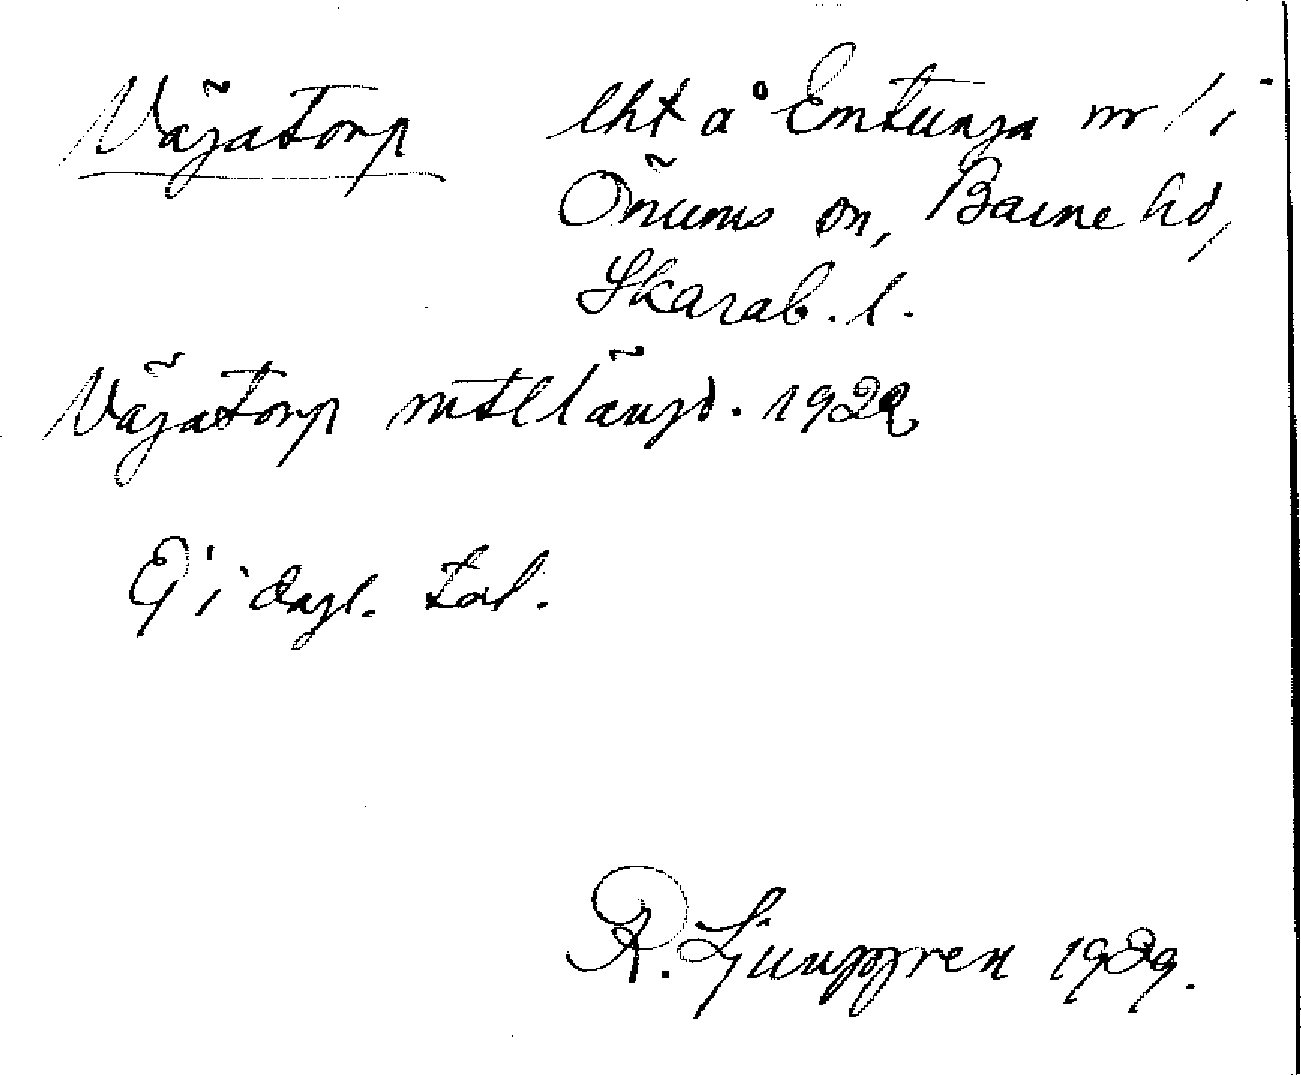 Vägatorp lht å Emtunga nr 1 i
Önums sn, Barne hd,
Skarab. l.
Vägatorp mtllängd. 1929
Ej i dagl. tal.
R. Ljunggren 1929.